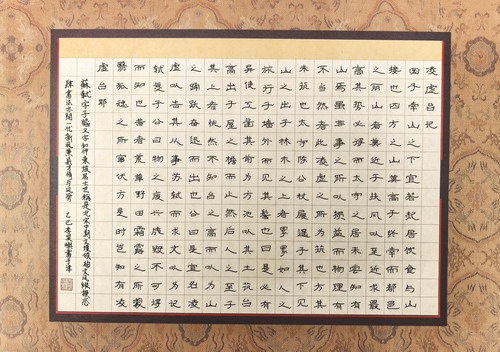 凌虛台記
國于南山之下宜若起居飲食與山
接也四方之山莫高于終南而都邑
之麗山者莫近于扶風以至近求最
高其勢必得而太守之居未嘗知有
山焉雖非事之所以損益而物理有
不當然者此凌虛之所為筑也方其
未筑也太守陳公杖履逍遙于其下見
山之出于林木之上者累累如人之
旅行于墻外而見其髻也曰是必有
異使工鑿其前為方池以其土筑台
高出于屋之檐而止然後人之至于
其上者恍然不知台之高而以為山
之踴躍奮迅而出也公曰是宜名凌
虛以告其從事蘇軾而求文以為記
軾復于公曰物之廢興成毀不可得
而知也昔者荒草野田霜露之所蒙
翳狐虺之所竄伏方是時豈知有凌
虛台耶
蘇軾字子瞻又字和仲東坡居士世稱是北宋中期文壇領袖文風縱橫恣
肆書法亦開一代新風 乙巳 書于津